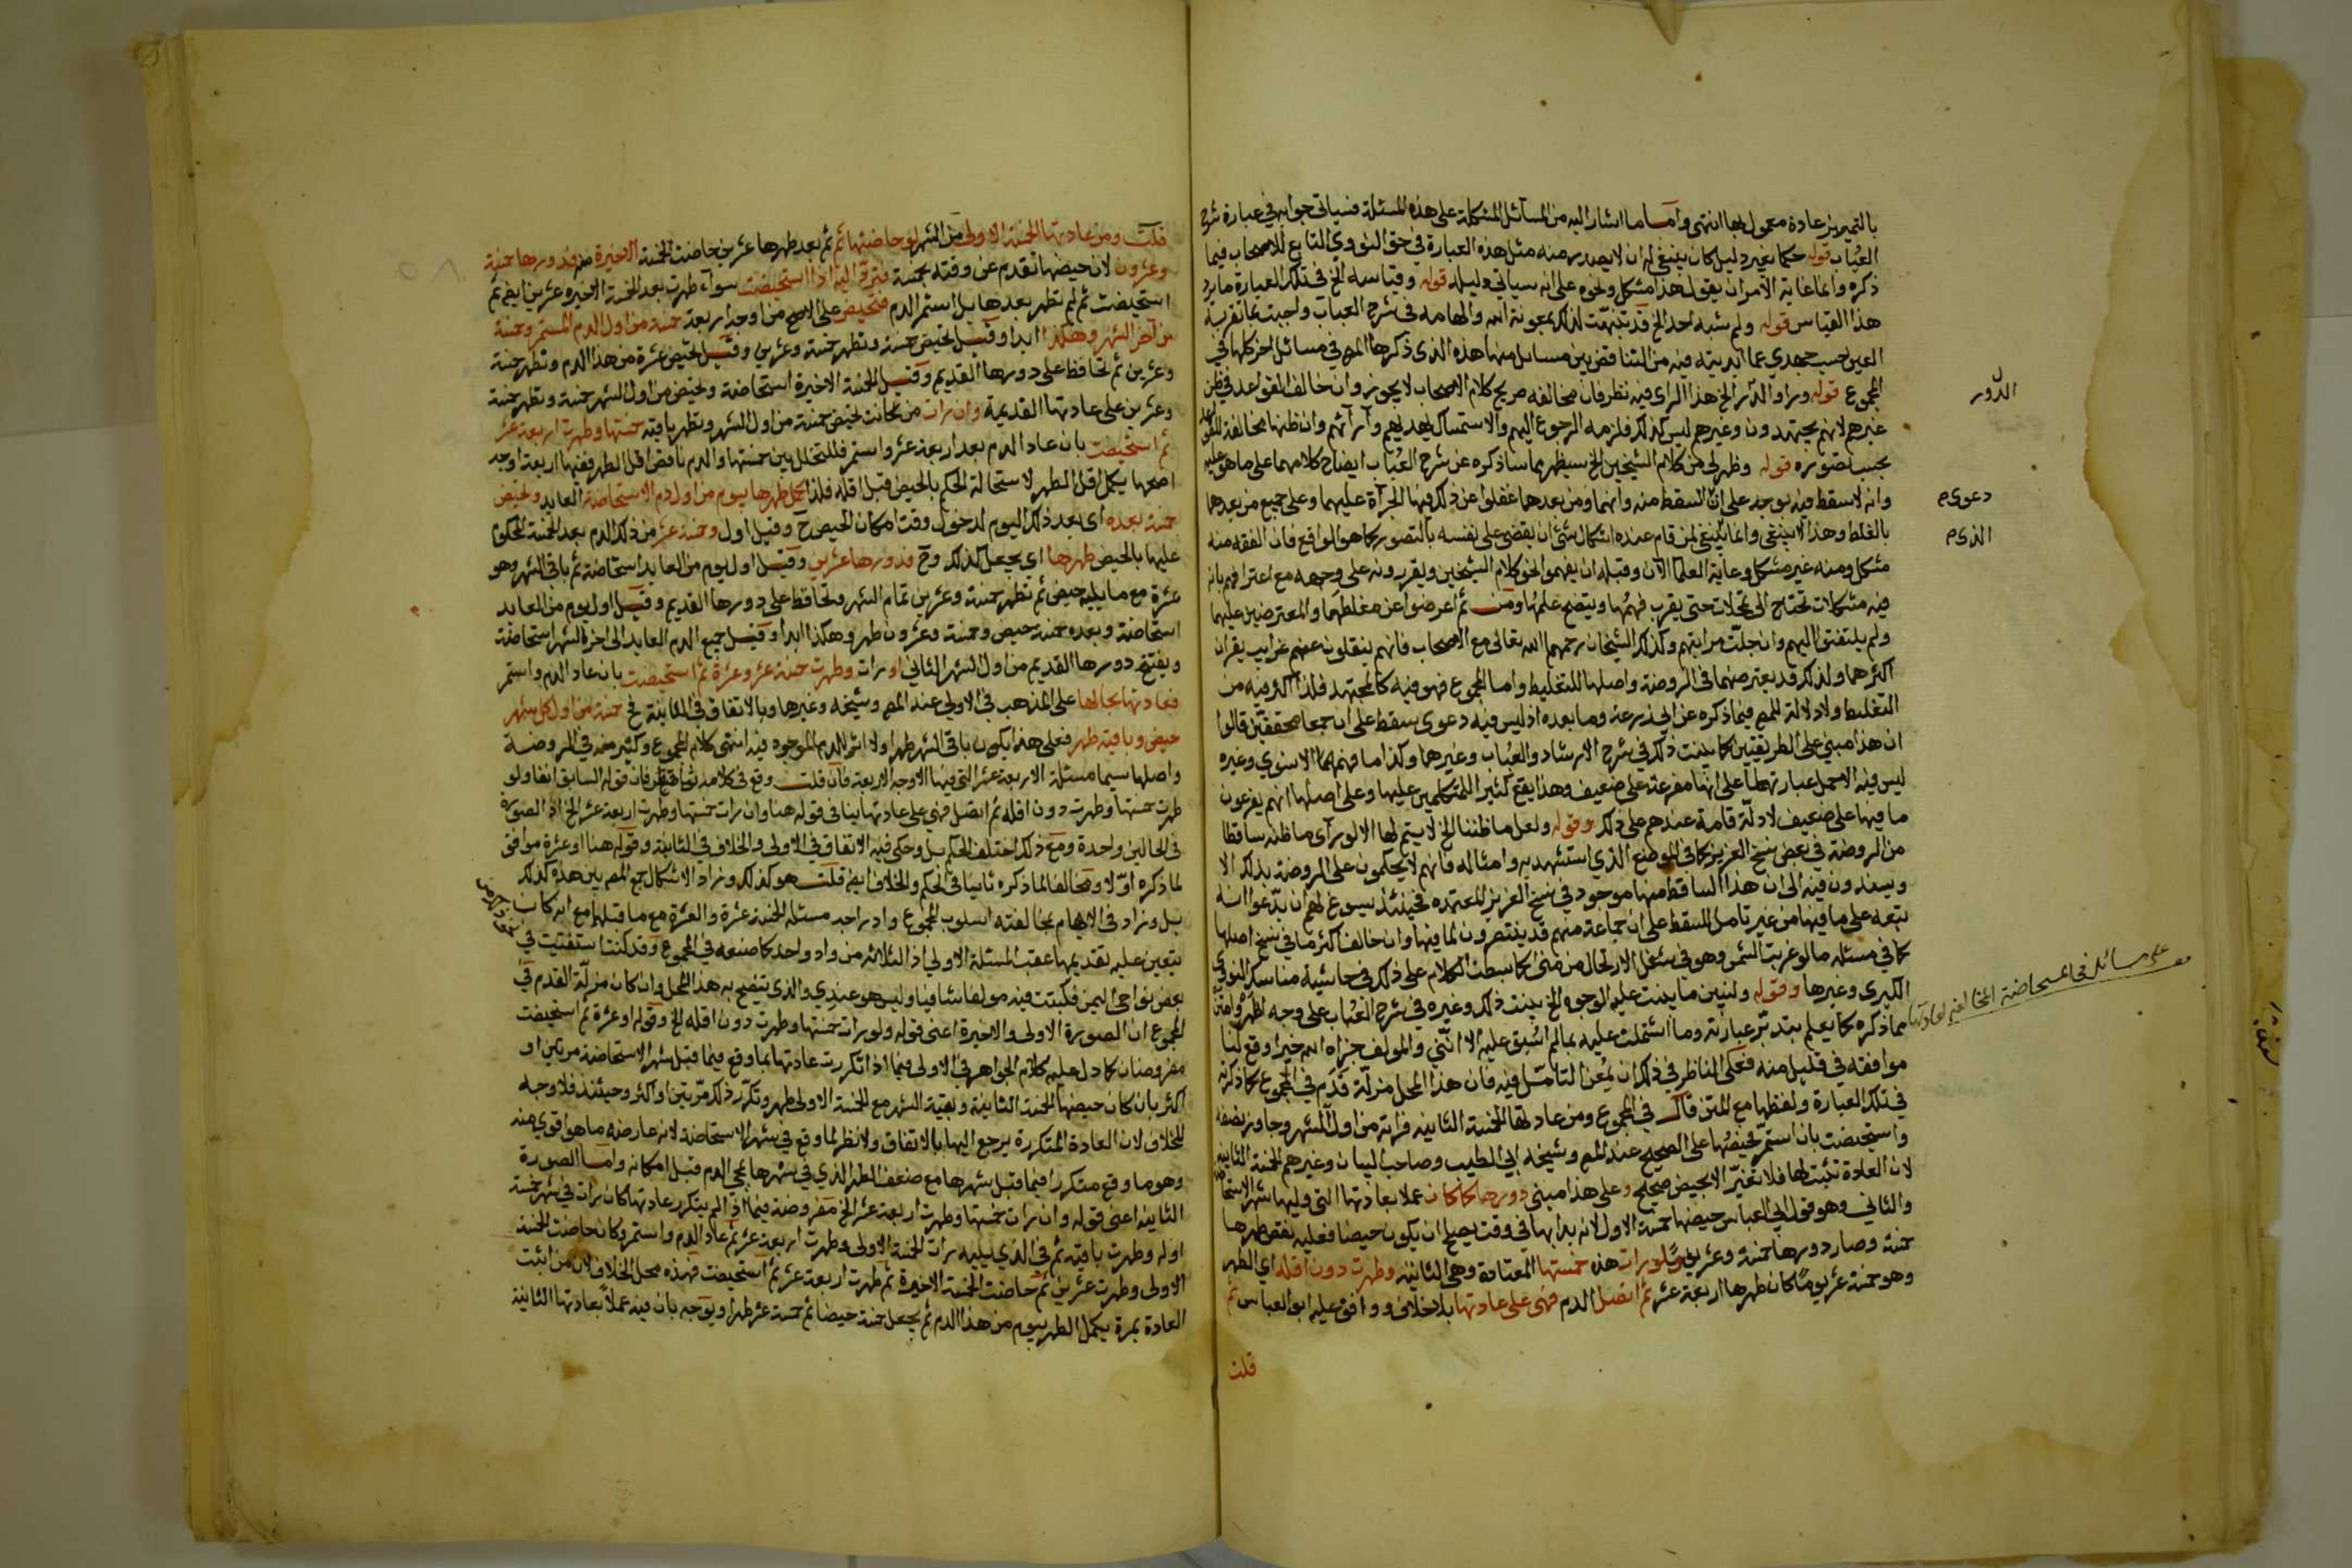 بالتمييز عادة معمول بها انتهى وأما ما اشار اليه من المسائل المشكلة على هذه المسئلة فسياتي جوابه في عبارة شرح
العباب قوله حكما بغير دليل كان ينبغي له ان لا يصدر منه مثل هذه العبارة في حق النووي التابع للاصحاب فيما
ذكره وانما غاية الامر ان يقول هذا مشكل ونحوه على انه سياتي دليله قوله وقياسه الخ في تلك العبارة ما رد
هذا القياس قوله ولم ينبه احد الخ قد تنبهت لذلك بمعونة الله والهامه في شرح العباب واجبت بما تقر به
العين بحسب جهدي عما ابديته فيه من التناقض بين مسائل منها هذه الذي ذكرها المص في مسائل اخر كلها في
المجموع قوله ورأو الدر الخ هذا الراي فيه نظر فان مخالفه صريح كلام الاصحاب لا يجوز وان خالف القواعد في ظن
غيرهم لانهم مجتهدون وغيرهم ليس كذلك فلزمه الرجوع اليهم والاستمساك بهديهم وآرائهم وان ظنها مخالفة للقواعد
بحسب تصوره قوله وظهر لي من كلام الشيخين الخ سيظهر مما ساذكره عن شرح العباب ايضاح كلامهما على ما هو عليه
وانه لا سقط فيه بوجه على ان السقط منه وانهما ومن بعدهما غفلوا عن ذلك فيها الجرآة عليهما وعلى جميع من بعدهما
بالغلط وهذا لا ينبغي وانما ينبغي لمن قام عنده اشكال شئ ان يقضي على نفسه بالتصور كما هو الواقع فان الفقه منه
مشكل ومنه غير مشكل وغاية العلما الآن وقبله ان يفهموا نحو كلام الشيخين ويقررونه على وجهه مع اعترافهم بانه
فيه مشكلات تحتاج الى تمحلات حتى يقرب فهمها ويتضح علمها ومن ثم اعرضوا عن مغلطهما والمعترضين عليهما
ولم يلتفتوا اليهم وان جلت مراتبهم وكذلك الشيخان رحمهم الله تعالى مع الاصحاب فانهم ينقلون عنهم غرايب يقران
اكثرهما ولذلك قد يعترضهما في الروضة واصلها للتغليط واما المجموع فهو فيه كالمجتهد فلذا اكثر فيه من
التغليط ولا دلالة للمص فيما ذكره عن ابي زرعة وما بعده اذ ليس فيه دعوى سقط على ان جمعا محققين قالوا
ان هذا مبني على الطريقتين كما بينت ذلك في شرح الارشاد والعباب وغيرهما وكذا ما فهمهما الاسنوي وغيره
ليس فيه الا حمل عبارتهما على انها مفرعة على ضعيف وهذا يقع كثيرا للمتكلمين عليها وعلى اصلها انهم يفرعون
ما فيها على ضعيف لادلة قامة عندهم على ذلك وقوله ولعل ما ظننا الخ لا يتم لها الا لو رآى ما ظنه ساقطا
من الروضة في بعض نسخ العزيز كما في الموضع الذي استشهد به وامثاله فانهم لا يحكمون على الروضة بذلك الا
ويسندون فيه الى ان هذا الساقط منها موجود في نسخ العزيز المعتمده فحينئذ يسوغ لهم ان يدعوا انه
تبعه على ما فيها من غير تامل للسقط على ان جماعة منهم قد ينتصرون لما فيها وان خالف اكثر ما في نسخ اصلها
كما في مسئله ما لو غربت الشمس وهو في شغل الارتحال من منى كما بسطت الكلام على ذلك في حاشية مناسك النووي
الكبرى وغيرها وقوله ولنبين ما يبنت عليه الوجوه الخ بينت ذلك وغيره في شرح العباب على وجه اظهر وامتن
مما ذكره كما يعلم بتدبر عبارته وما اشتملت عليه بما لم اسبق عليه الا انني والمولف جزاه الله خيرا وقع لنا
موافقه في قليل منه فعلى الناظر في ذلك ان يمعن التامل فيه فان هذا المحل مزلة قدم في المجموع كما ذكرته
في تلك العبارة ولفظها مع المتن قال في المجموع ومن عادتها الخمسة الثانية فراته من اول الشهر وجاوز نصفه
واستحيضت بان استمر فحيضها على الصحيح عند المص وشيخه ابي الطيب وصاحب البيان وغيرهم الخمسة الثانية
لان العادة تثبت لها فلا تغير الا بحيض صحيح وعلى هذا مبني دورها كما كان عملا بعادتها التي وليها شهر الاستحاضة
والثاني وهو قول ابي العباس حيضها خمسة الاول لانه بدا بها في وقت يصح ان يكون حيضا فعليه نقص طهرها
خمسة وصار دورها خمسة وعشرين ولو رات هذه خمستها المعتادة وهي الثانية وطهرت دون اقله اي الطهر
وهو خمسة عشر يوما كان طهرها اربعة عشر ثم اتصل الدم فهي على عادتها بلا خلاف ووافق عليه ابو العباس ثم
قلت
الدور
دعوى م
الذي م
على مسائل في المستحاضة المخالفة لعادتها
قلت ومن عادتها الخمسة الاولى من الشهر لو حاضتها ثم بعد طهرها عشرين حاضت الخمسة الاخيرة منه فدورها خمسة
وعشرون لان حيضها تقدم عن وقته بخمسة فترد اليه اذا استحيضت سواء طهرت بعد الخمسة الاخيرة عشرين ايضا ثم
استحيضت ثم لم تطهر بعدها بل استمر الدم فتحيض على الاصح من اوجه اربعة خمسة من اول الدم المستمر وخمسة
من آخر الشهر وهكذا ابدا وقيل تحيض خمسة وتطهر خمسة وعشرين وقيل تحيض عشرة من هذا الدم وتطهر خمسة
وعشرين ثم تحافظ على دورها القديم وقيل الخمسة الاخيرة استحاضة وتحيض من اول الشهر خمسة وتطهر خمسة
وعشرين على عادتها القديمة وان رات من كانت تحيض خمسة من اول الشهر وتطهر باقيه خمستها وطهرت اربعة عشر
ثم استحيضت بان عاد الدم بعد اربعة عشر واستمر فالمتخلل بين خمستها والدم ناقص اقل الطهر ففيها اربعة اوجه
اصحها يكمل اقل الطهر لاستحالة الحكم بالحيض قبل اقله فلذا كمل طهرها بيوم من اول دم الاستحاضة العايد وتحيض
خمسة بعده اي بعد ذلك اليوم لدخول وقت امكان الحيض ح وقيل اول وخمسة عشر من ذلك الدم بعد الخمسة المحكوم
عليها بالحيض طهرها اي يجعل كذلك وح فدورها عشرين وقيل اول يوم من العايد استحاضة ثم باقي الشهر وهو
عشرة مع ما يليه حيض ثم تطهر خمسة وعشرين تمام الشهر وتحافظ على دورها القديم وقيل اول يوم من العايد
استحاضة وبعده خمسة حيض وخمسة وعشرون طهر وهكذا ابدا وقيل جميع الدم العايد الى اخر الشهر استحاضة
ويفتتح دورها القديم من اول الشهر الثاني او رات وطهرت خمسة عشر وعشرة ثم استحيضت بان عاد الدم واستمر
فعادتها بحالها على المذهب في الاولى عند المص وشيخه وغيرها وبالاتفاق في الثانية فح خمسة من اول كل شهر
حيض وباقيه طهر فعلى هذا يكون باقي الشهر طهرا ولا اثر للدم الموجود فيه انتهى كلام المجموع وكثير منه في الروضة
واصلها سيما مسئلة الاربعة عشر التي فيها الاوجه الاربعة فان قلت وقع في كلامه تناقض فان قوله السابق انفا ولو
طهرت خمستها وطهرت دون اقله ثم اتصل فهي على عادتها ينافي قوله هنا وان رات خمستها وطهرت اربعة عشر الخ اذ الصورة
في الحالين واحدة ومع ذلك اختلف الحكم بل وحكى فيه الاتفاق في الاولى والخلاف في الثانية وقوله هنا او عشرة موافق
لما ذكره اولا ومخالف لما ذكره ثانيا في الحكم والخلاف ايضا قلت هو كذلك وزاد الاشكال جمع المص بين هذه كذلك
بل وزاد في الايهام بمخالفته اسلوب المجموع وادراجه مسئله الخمسة عشرة والعشرة مع ما قبلهما مع انه كان
يتعين عليه تقديمها عقب المسئلة الاولى اذ الثلاثه من واد واحد كما صنعه في المجموع وقد كنت استفتيت في
بعض نواحي اليمن فكتبت فيه مولفا شافيا وليس هو عندي والذي يتضح به هذا المحل وان كان مزلة القدم في
المجموع ان الصورة الاولى والاخيرة اعني قوله ولو رات خمستها وطهرت دون اقله الخ وقوله او عشرة ثم استحيضت
مفروضتان كما دل عليه كلام الجواهر في الاولى فيما اذا تكررت عادتها بما وقع فيما قبل شهر الاستحاضة مرتين او
اكثر بان كان حيضها الخمسة الثانية وبقية الشهر مع الخمسة الاولى طهر وتكرر ذلك مرتين او اكثر وحينئذ فلا وجه
للخلاف لان العادة المتكررة يرجع اليها بالاتفاق ولا نظر لما وقع في شهر الاستحاضة لانه عارضه ما هو اقوى منه
وهو ما وقع متكررا فيما قبل شهرها مع ضعف الطهر الذي في شهرها بمجي الدم قبل امكانه واما الصورة
الثانية اعني قوله وان رات خمستها وطهرت اربعة عشر الخ مفروضة فيما اذا لم يتكرر عادتها كان رات في شهر خمسة
اوله وطهرت باقيه ثم في الذي يليه رات الخمسة الاولى وطهرت اربعة عشر ثم عاد الدم واستمر وكان حاضت الخمسة
الاولى وطهرت عشرين ثم حاضت الخمسة الاخيرة ثم طهرت اربعة عشر ثم استحيضت فهذه محل الخلاف لان من اثبت
العادة بمرة يكمل الطهر بيوم من هذا الدم ثم يجعل خمسة حيضا ثم خمسة عشر طهرا ويوجه بان فيه عملا بعادتها الثانية